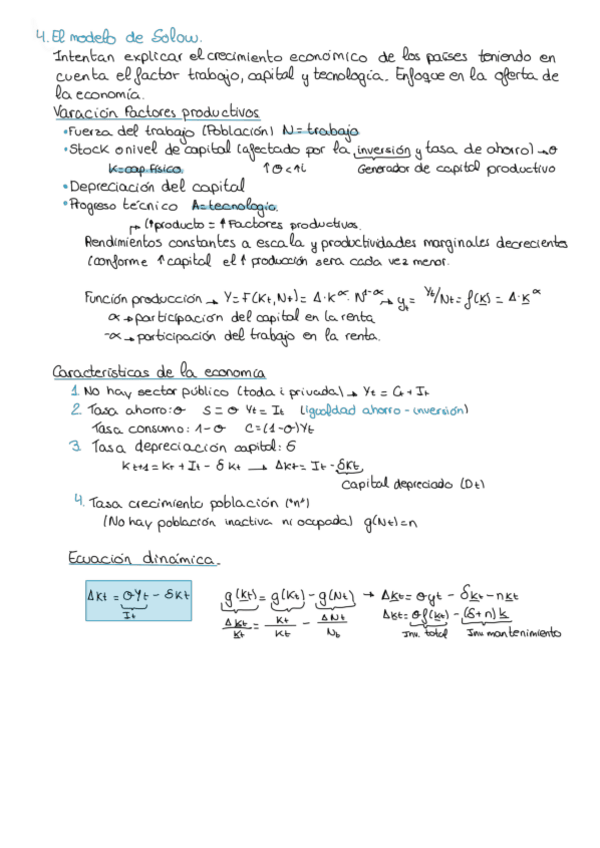 4. El modelo de Solow.
Intentan explicar el crecimiento económico de los países teniendo en
cuenta el factor trabajo, capital y tecnología. Enfoque en la oferta de
la economía.
Varación Factores productivos
• Fuerza del trabajo (Población) N = trabajo
• Stock o nivel de capital (afectado por la inversión y tasa de ahorro) → σ
K = cap. Físico. ↑σ<↑i Generador de capital productivo
• Depreciación del capital
• Progreso técnico A = tecnología.
↱ (↑producto = ↑Factores productivos.
Rendimientos constantes a escala y productividades marginales decrecientes
(conforme ↑ capital el ↑ producción sera cada vez menor.
Función producción → Y = F(Kt, Nt) = A · K^α · N^1-α → yt = Yt/Nt = f(k) = A · k^α
α → participación del capital en la renta
-α → participación del trabajo en la renta.
Caracteristicas de la economía
1. No hay sector público (toda i privada) → Yt = Ct + It
2. Tasa ahorro: σ S = σ Yt = It (igualdad ahorro - inversión)
Tasa consumo: 1-σ C = (1-σ)Yt
3. Tasa depreciación capital: δ
Kt+1 = Kt + It - δ Kt → ΔKt = It - δKt
capital depreciado (Dt)
4. Tasa crecimiento población ("n")
(No hay población inactiva ni ocupada) g(Nt) = n
Ecuación dinámica.
ΔKt = σYt - δKt g(kt) = g(Kt) - g(Nt) → Δkt = σyt - δkt - nkt
It Δkt/kt = Kt/Kt - ΔNt/Nt Δkt = σf(kt) - (δ+n)k
Inv. total Inv. mantenimiento